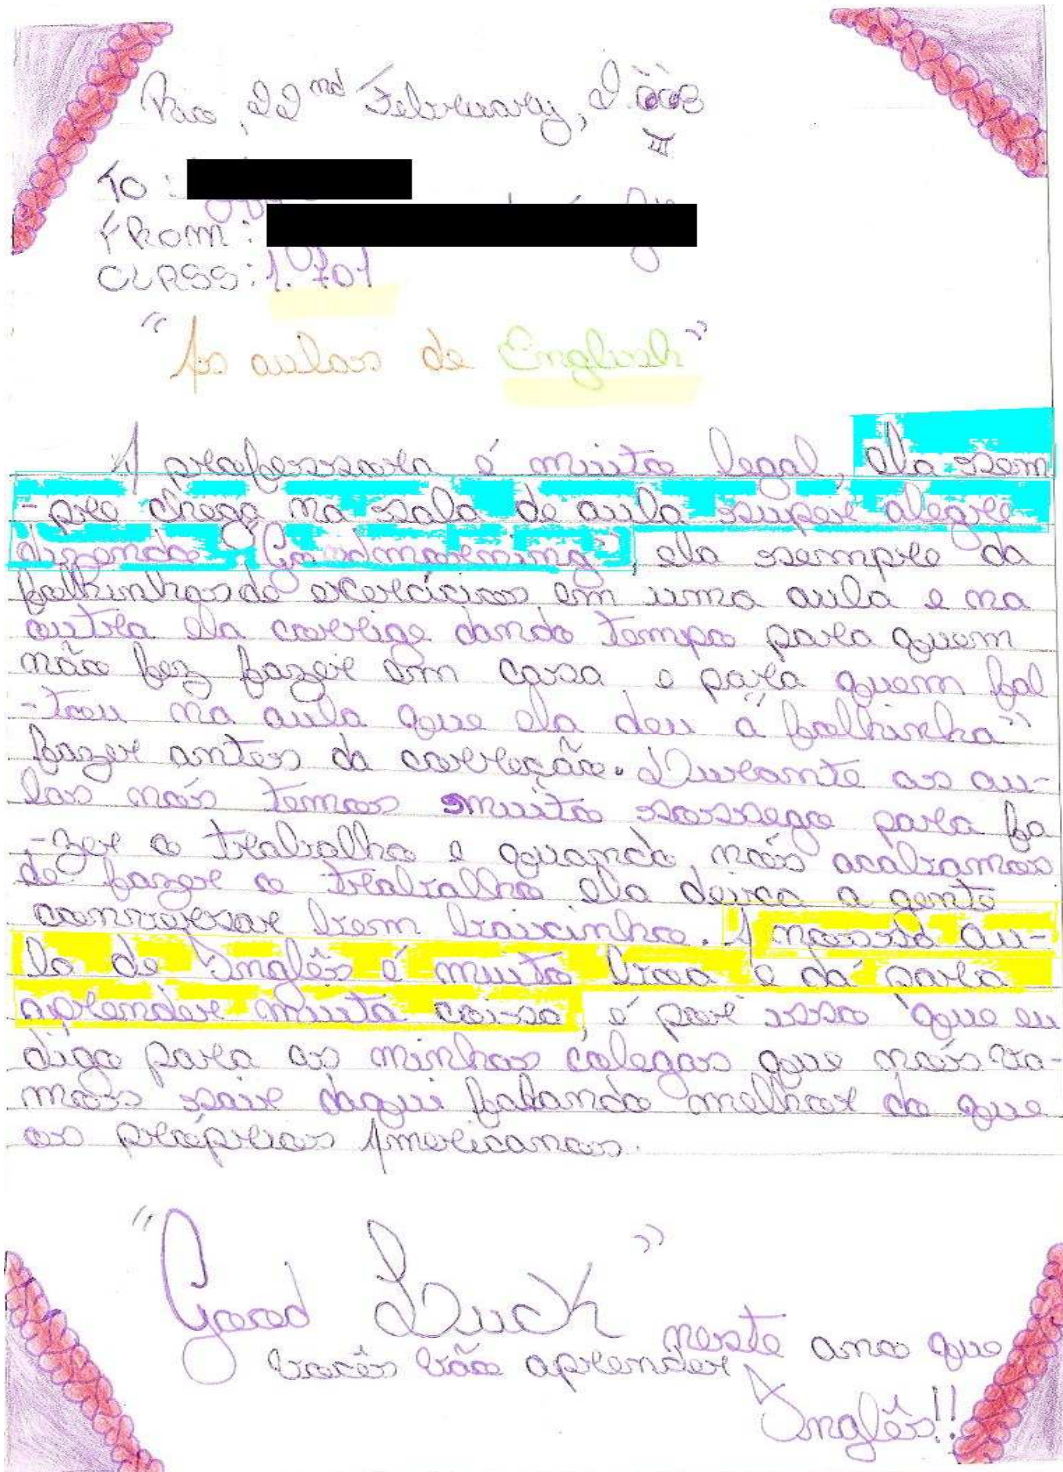 Rio, 22nd February, 2.003
III
TO:
FROM:
CLASS: 1.701
"As aulas de English"
A professora é muito legal, ela sem
-pre chega na sala de aula super alegre
dizendo "Goodmorning", ela sempre da
folhinhas de exercícios em uma aula e na
outra ela corrige dando tempo para quem
não fez fazer em casa e para quem fal
-tou na aula que ela deu a "folhinha"
fazer antes da correção. Durante as au-
las nós temos muito sossego para fa
-zer o trabalho e quando nós acabamos
de fazer o trabalho ela deixa a gente
conversar bem baixinho. A nossa au-
la de Inglês é muito boa e dá para
aprender muita coisa, é por isso que eu
digo para as minhas colegas que nós va-
mos sair daqui falando melhor do que
os próprios Americanos.
"Good Luck"
neste ano que
vocês vão aprender
Inglês!!